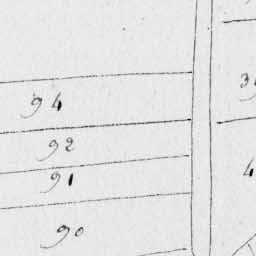 94
92
91
90
4